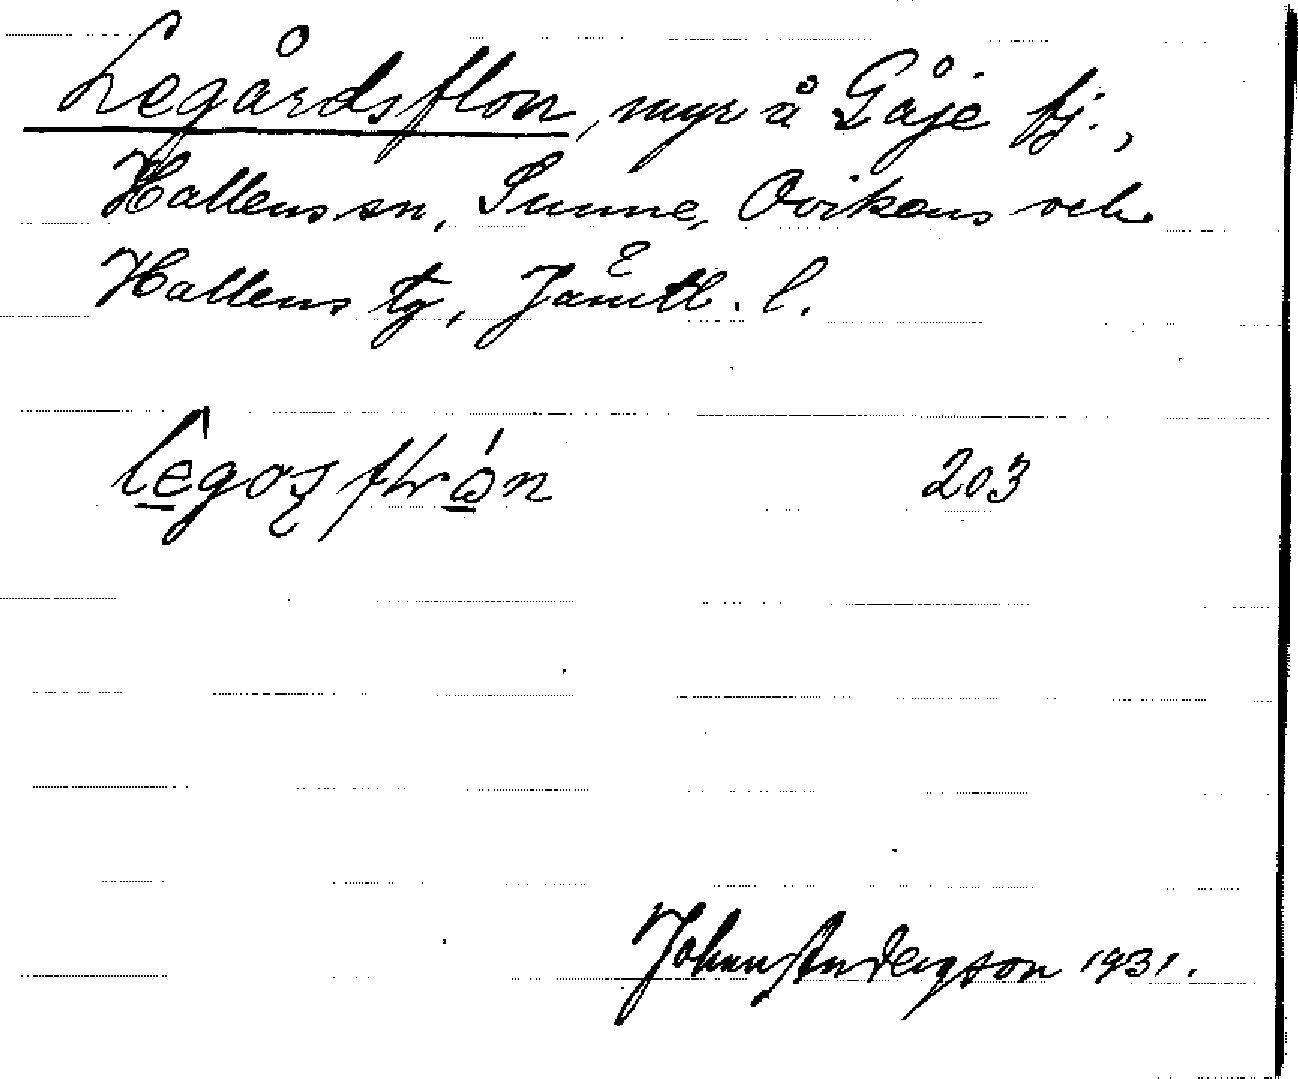 Legårdsflon, myr å Gåje fj.,
Hallens sn, Sunne, Ovikens och
Hallens tg, Jämtl. l.
203
Johan Anderson 1931.